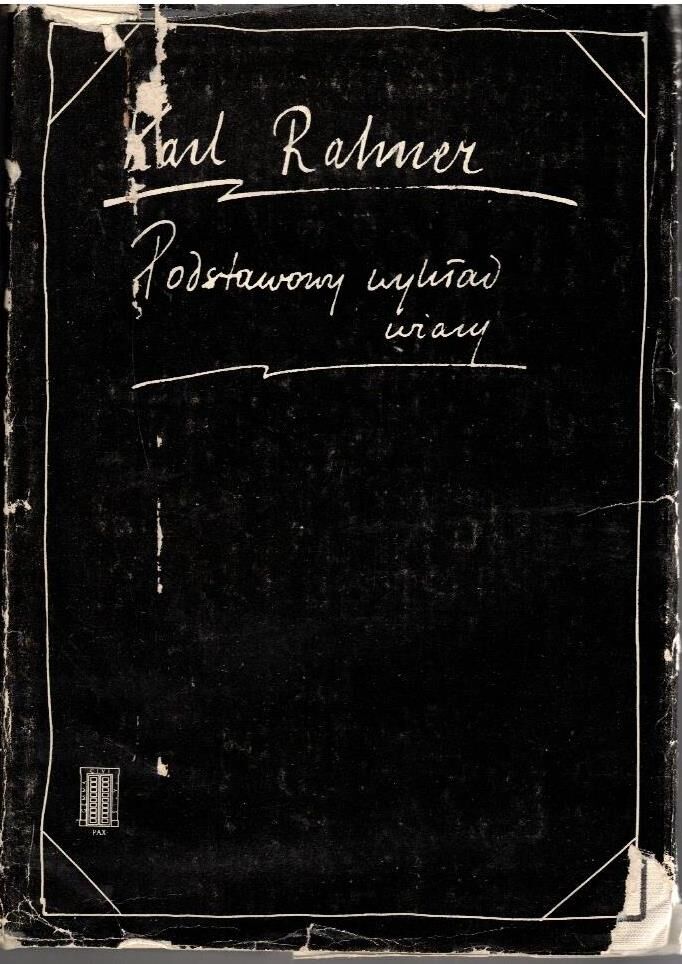 Karl Rahner
Podstawowy wykład
wiary
PAX